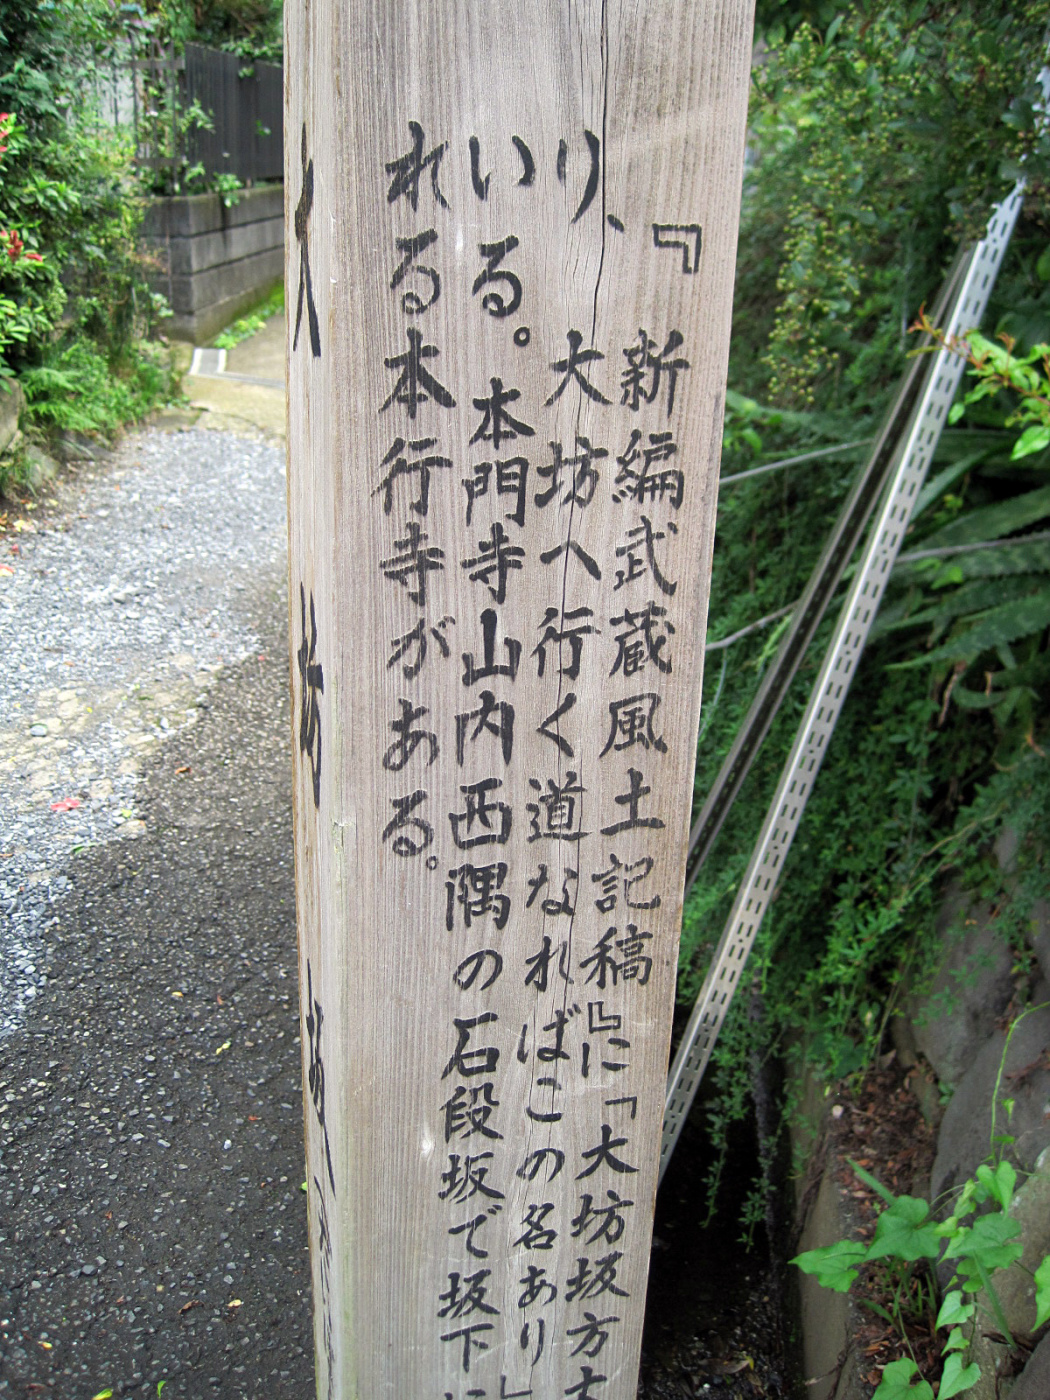 『新編武蔵風土記稿』に「大坊坂方
り、大坊へ行く道なればこの名あり」
いる。本門寺山内西隅の石段坂で坂下に
れる本行寺がある。
大坊坂